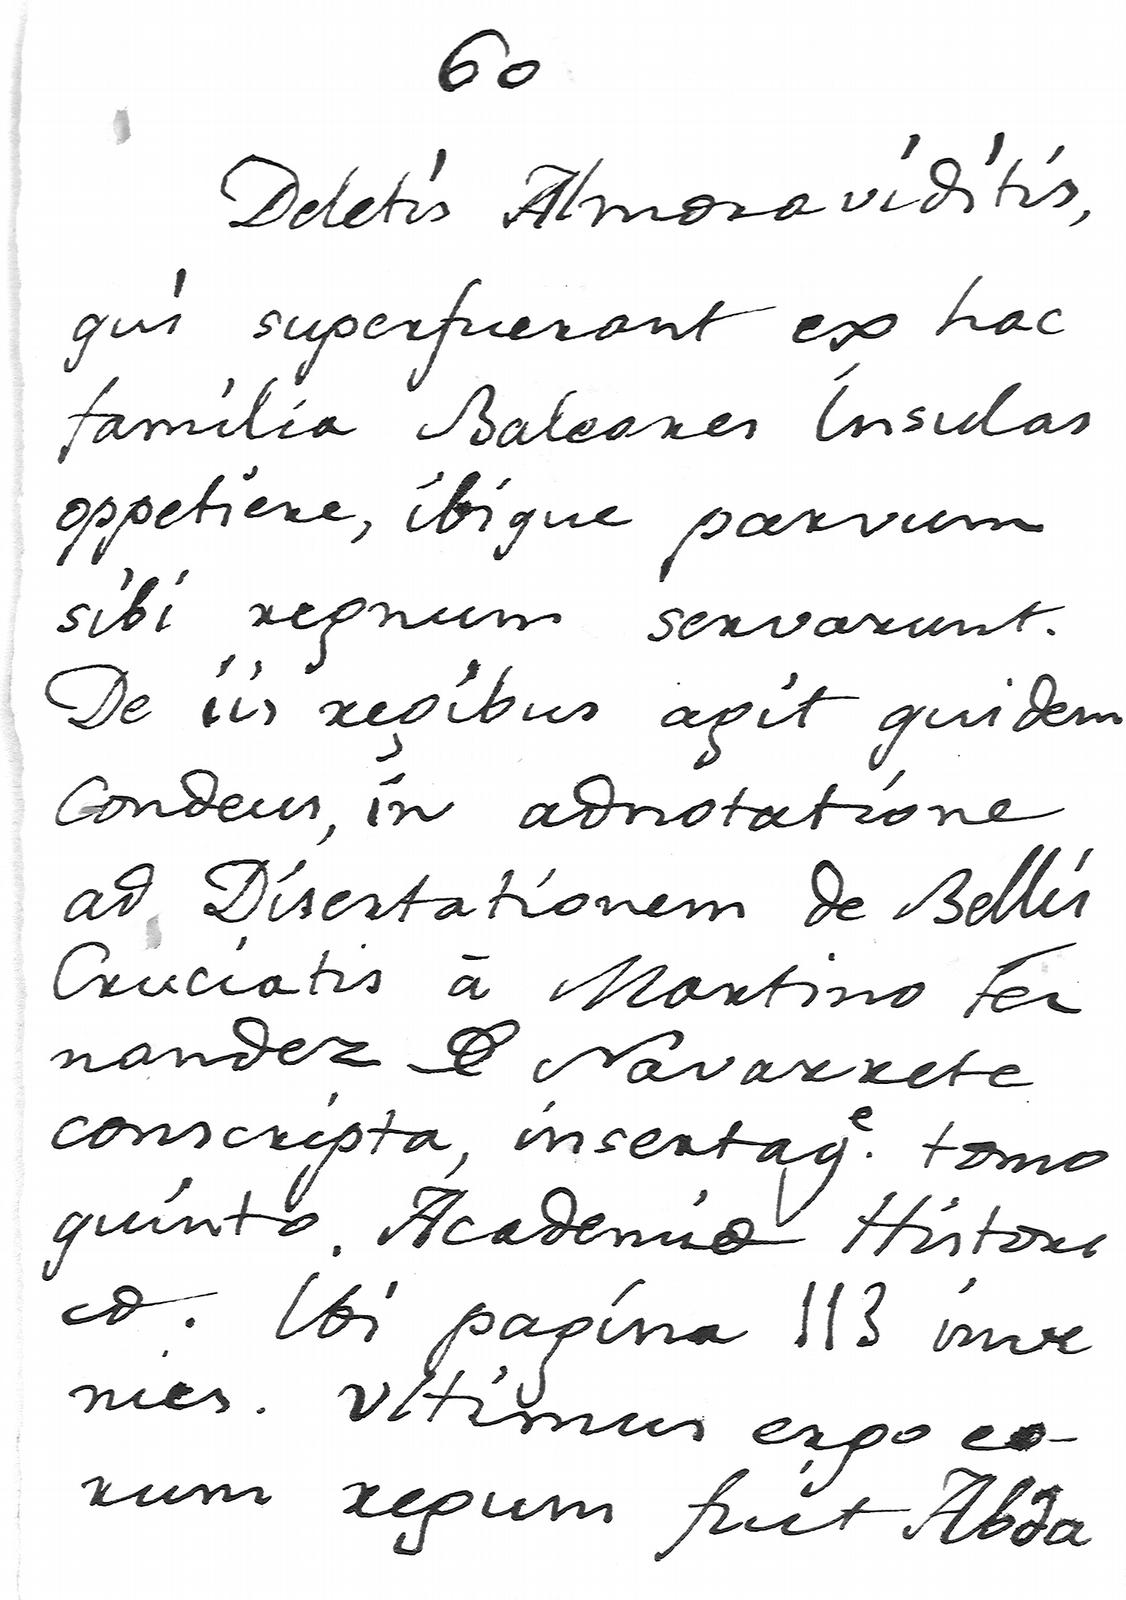 60
Deletis Almoraviditis,
qui superfuerant ex hac
familia Baleares Insulas
oppetiere, ibique parvum
sibi regnum servarunt.
De iis regibus agit quidem
Condeus, in adnotatione
ad Disertationem de Bellis
Cruciatis ā Martino Fer
nandez De Navarrete
conscripta, insertaqe. tomo
quinto. Academiæ Histori
cæ. Ibi pagina 113 inve
nies. Vltimus ergo eo-
rum regum fuit Abda